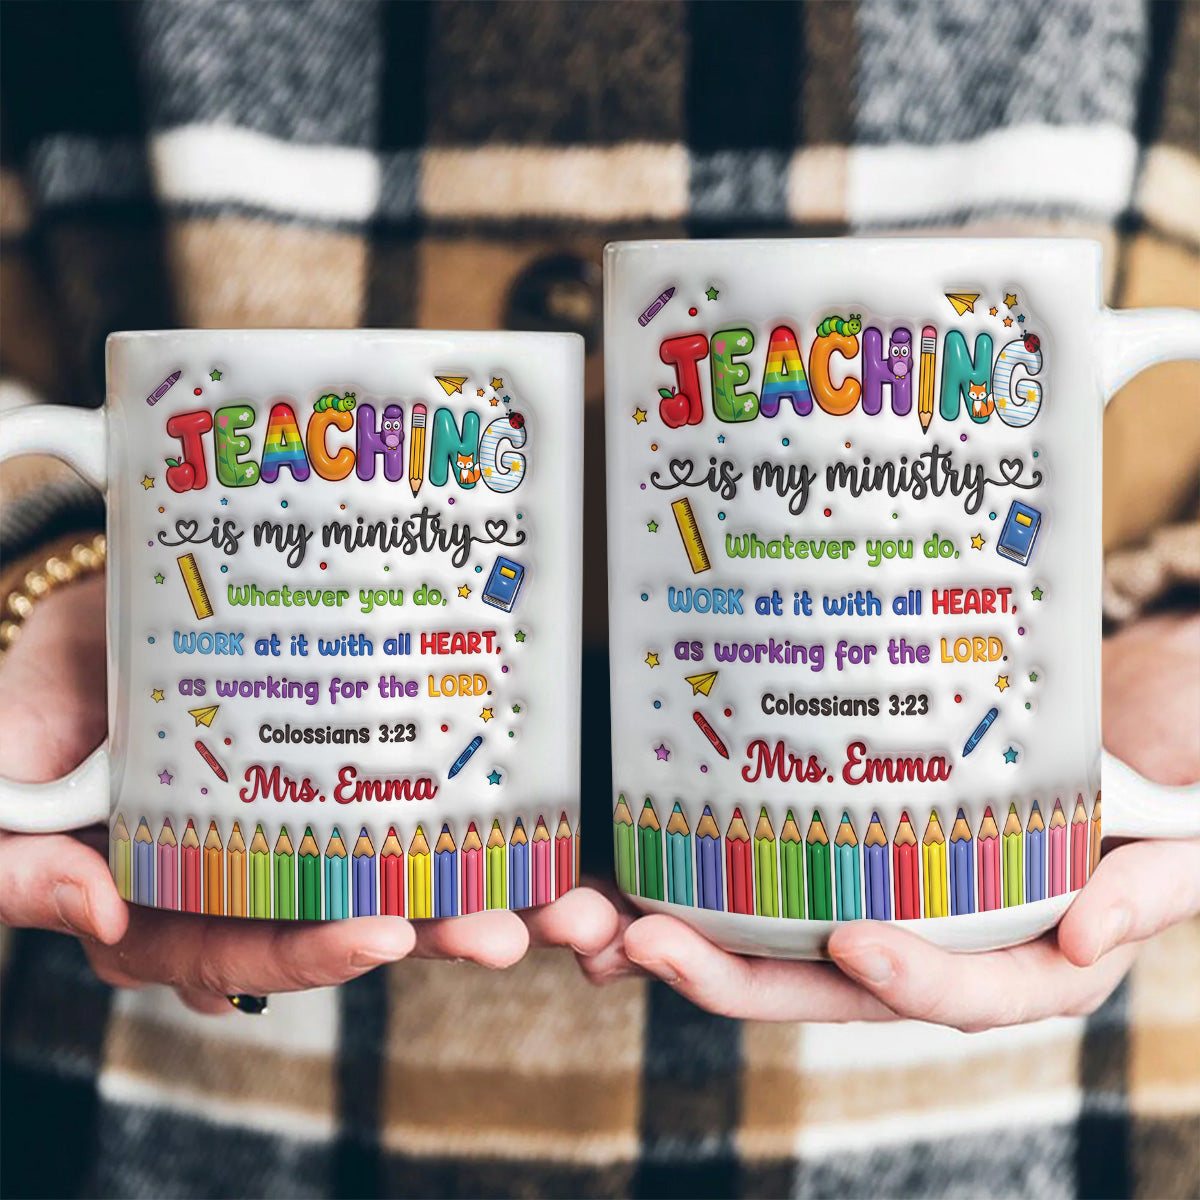 TEACHING
is my ministry
Whatever you do,
WORK at it with all HEART,
as working for the LORD.
Colossians 3:23
Mrs. Emma
TEACHING
is my ministry
Whatever you do,
WORK at it with all HEART,
as working for the LORD.
Colossians 3:23
Mrs. Emma